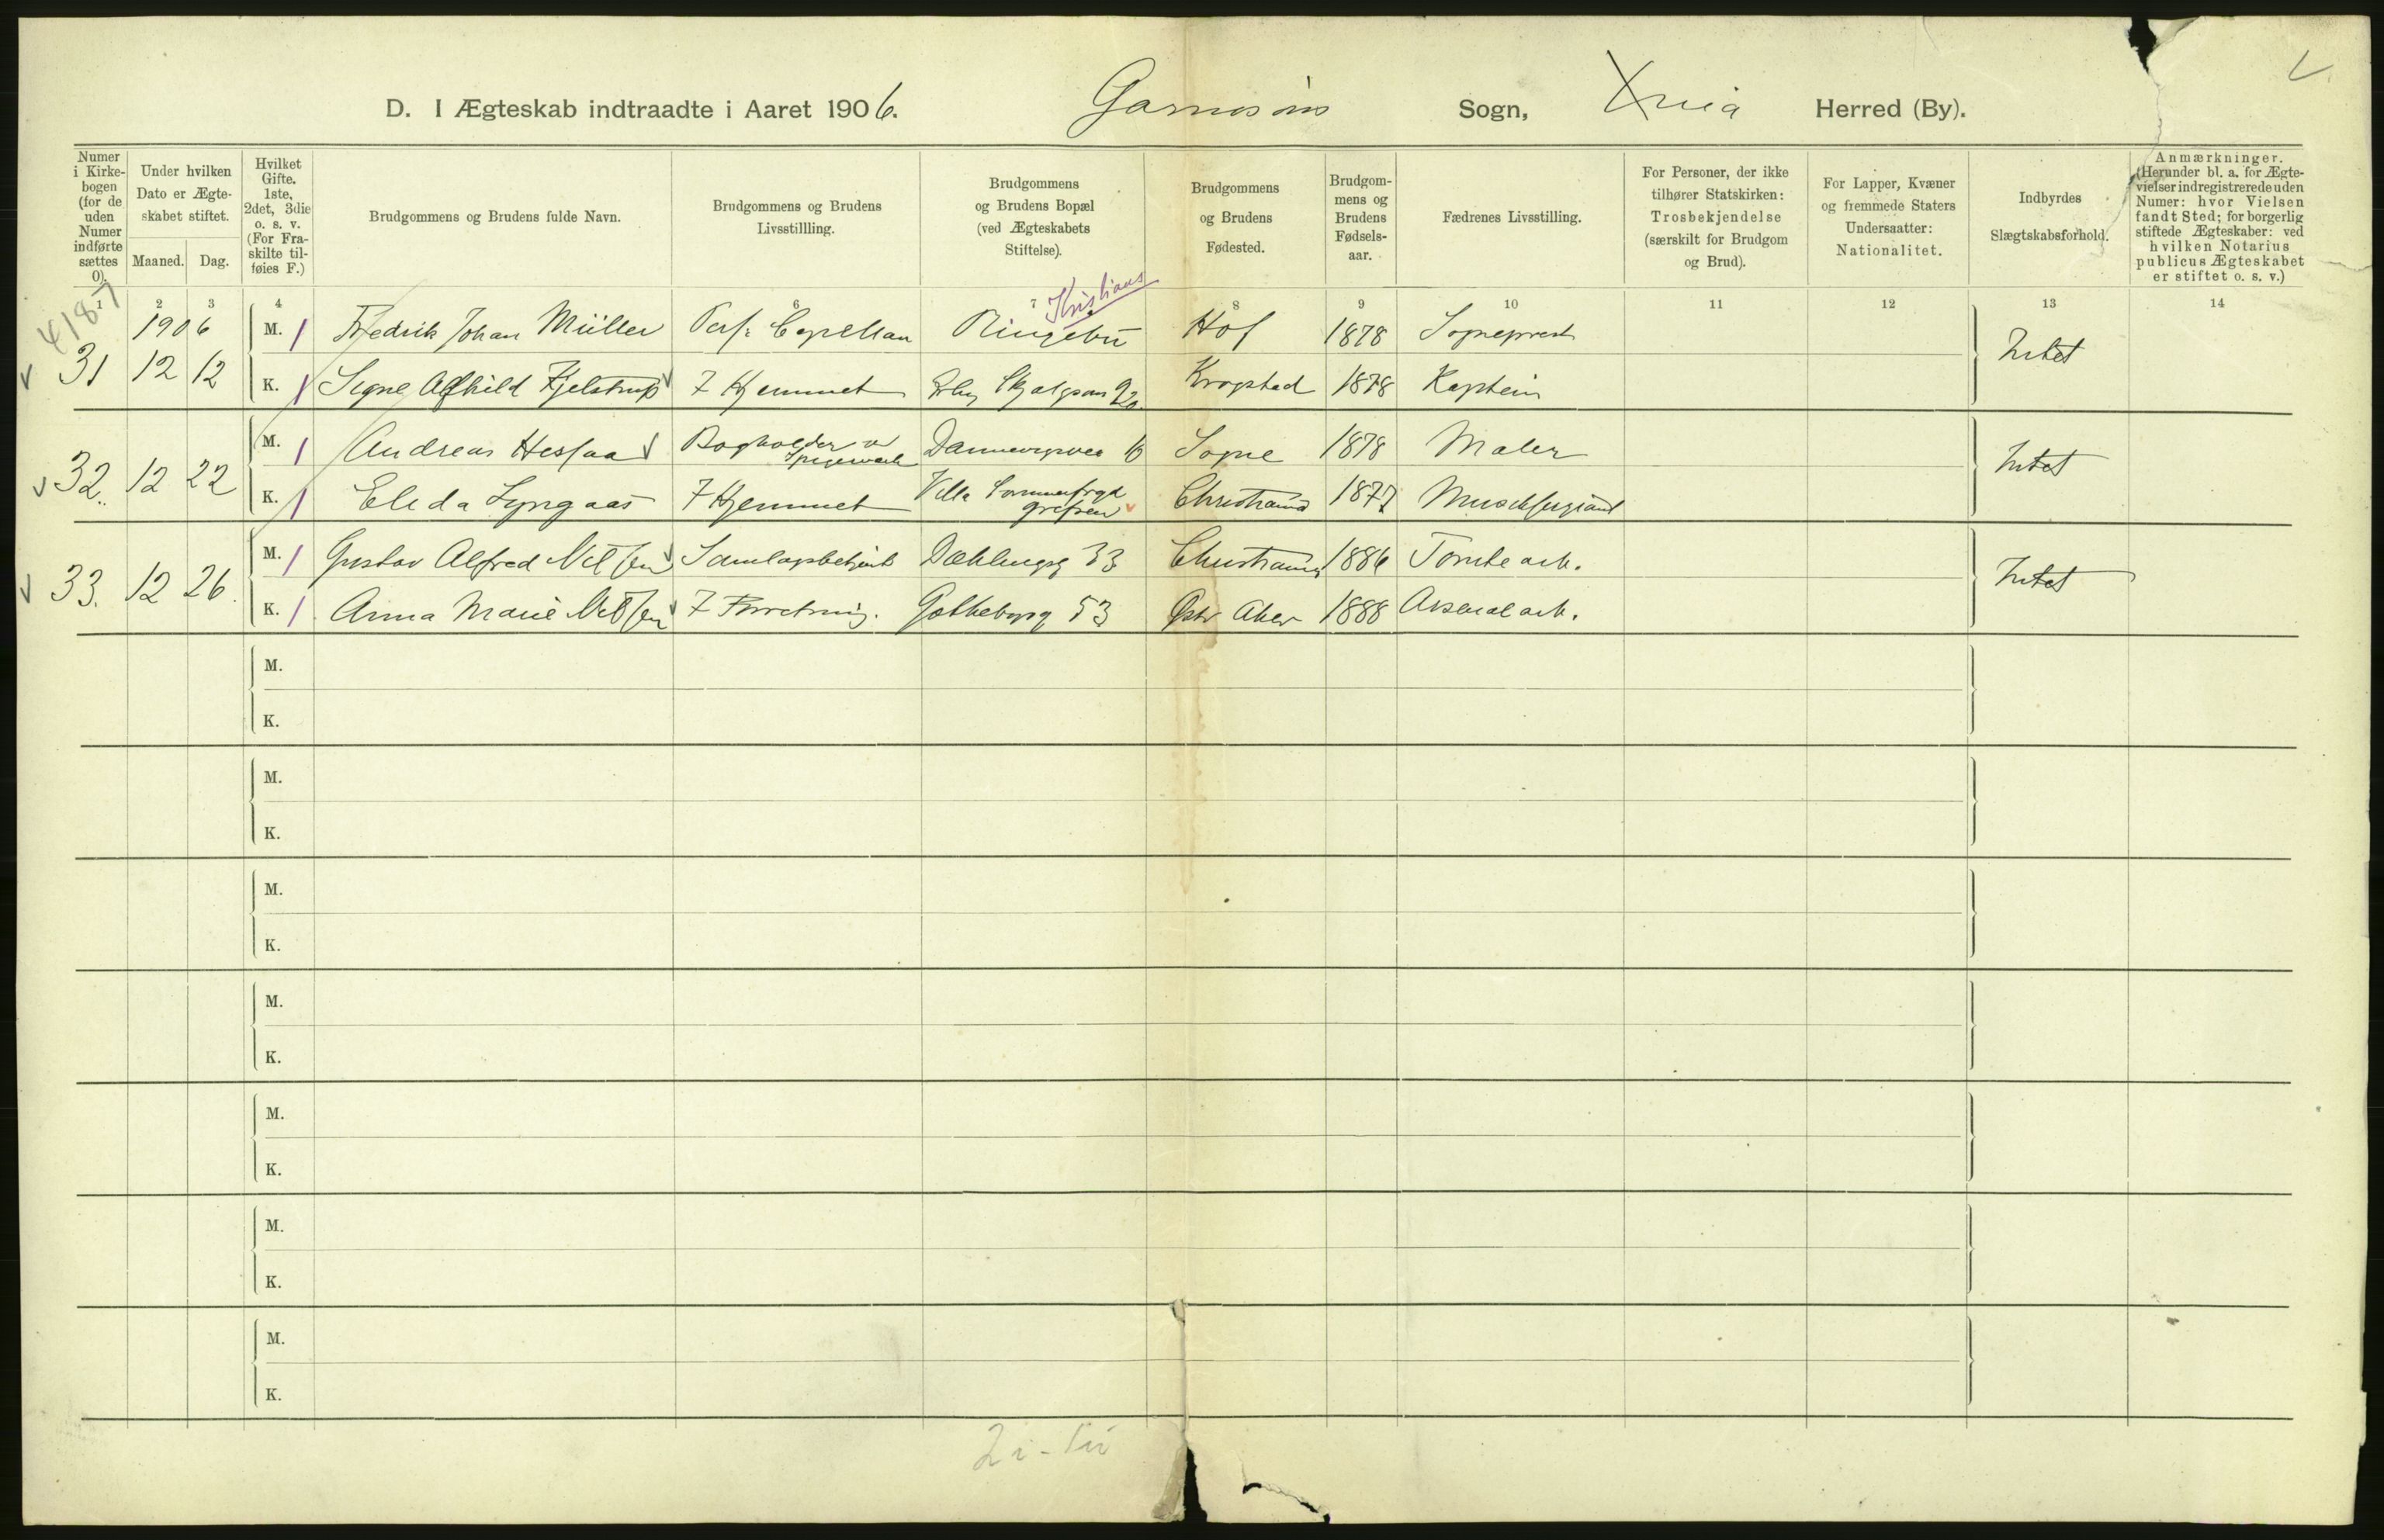 D. I Ægteskab indtraadte i Aaret 1906. Garnisons Sogn, Xnia Herred (By).
Numer i Kirkebogen (for de uden Numer indførte sættes 0).
Under hvilken Dato er Ægteskabet stiftet.
Maaned. Dag.
Hvilket Gifte. 1ste, 2det, 3die o. s. v. (For Fraskilte tilføies F.)
Brudgommens og Brudens fulde Navn.
Brudgommens og Brudens Livsstillling.
Brudgommens og Brudens Bopæl (ved Ægteskabets Stiftelse).
Brudgommens og Brudens Fødested.
Brudgommens og Brudens Fødselsaar.
Fædrenes Livsstilling.
For Personer, der ikke tilhører Statskirken: Trosbekjendelse (særskilt for Brudgom og Brud).
For Lapper, Kvæner og fremmede Staters Undersaatter: Nationalitet.
Indbyrdes Slægtskabsforhold.
Anmærkninger. (Herunder bl. a. for Ægtevielser indregistrerede uden Numer: hvor Vielsen fandt Sted; for borgerlig stiftede Ægteskaber: ved hvilken Notarius publicus Ægteskabet er stiftet o. s. v.)
1 2 3 4 6 7 8 9 10 11 12 13 14
4187
Kristians
1906 M. 1 Fredrik Johan Müller Pers: Capellan Ringebu Hof 1878 Sogneprest
31 12 12 Intet
K. 1 Signe Alfhild Kjelstrup I Hjemmet Skjalgson 20 Krogstad 1878 Kaptein
M. 1 Andreas Hessaa Bogholder v Spigerverk Dannevigsvei 16 Sogne 1878 Maler
32. 12 22 Intet
K. 1 Elida Lyngaas I Hjemmet Villa Sommerfryd Grefsen Christiania 1877 Musiksergiant
M. 1 Gustav Alfred Nilssen Samlagsbetjent Dælenggg 33 Christiania 1886 Tomtearb.
33. 12 26. Intet
K. 1 Anna Marie Nilssen I Forretning. Gøtheborgg 53 Østr Aker 1888 Arsenalarb.
M.
K.
M.
K.
M.
K.
M.
K.
M.
K.
M.
K.
M.
K.